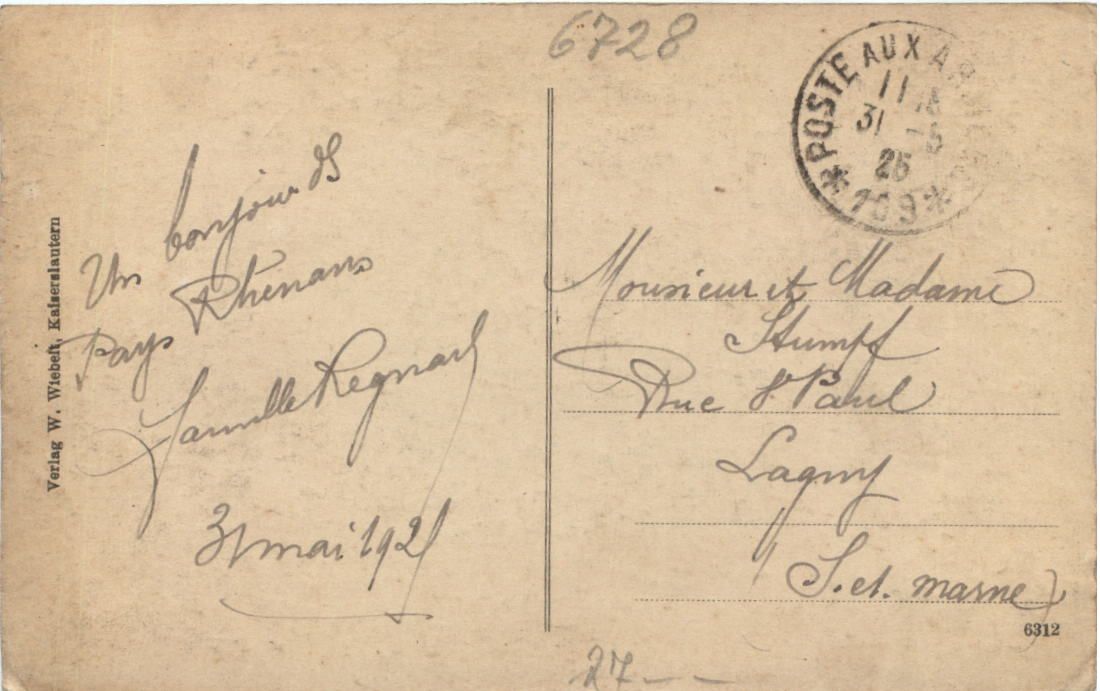 6728
* POSTE AUX ARMEES *
11
31 -5
25
109
Un bonjour des
Pays Rhénans
Famille Regnard
31 mai 1925
Verlag W. Wiebelt, Kaiserslautern
Monsieur et Madame
Stumpf
Rue St Paul
Lagny
S. et. marne
6312
27--